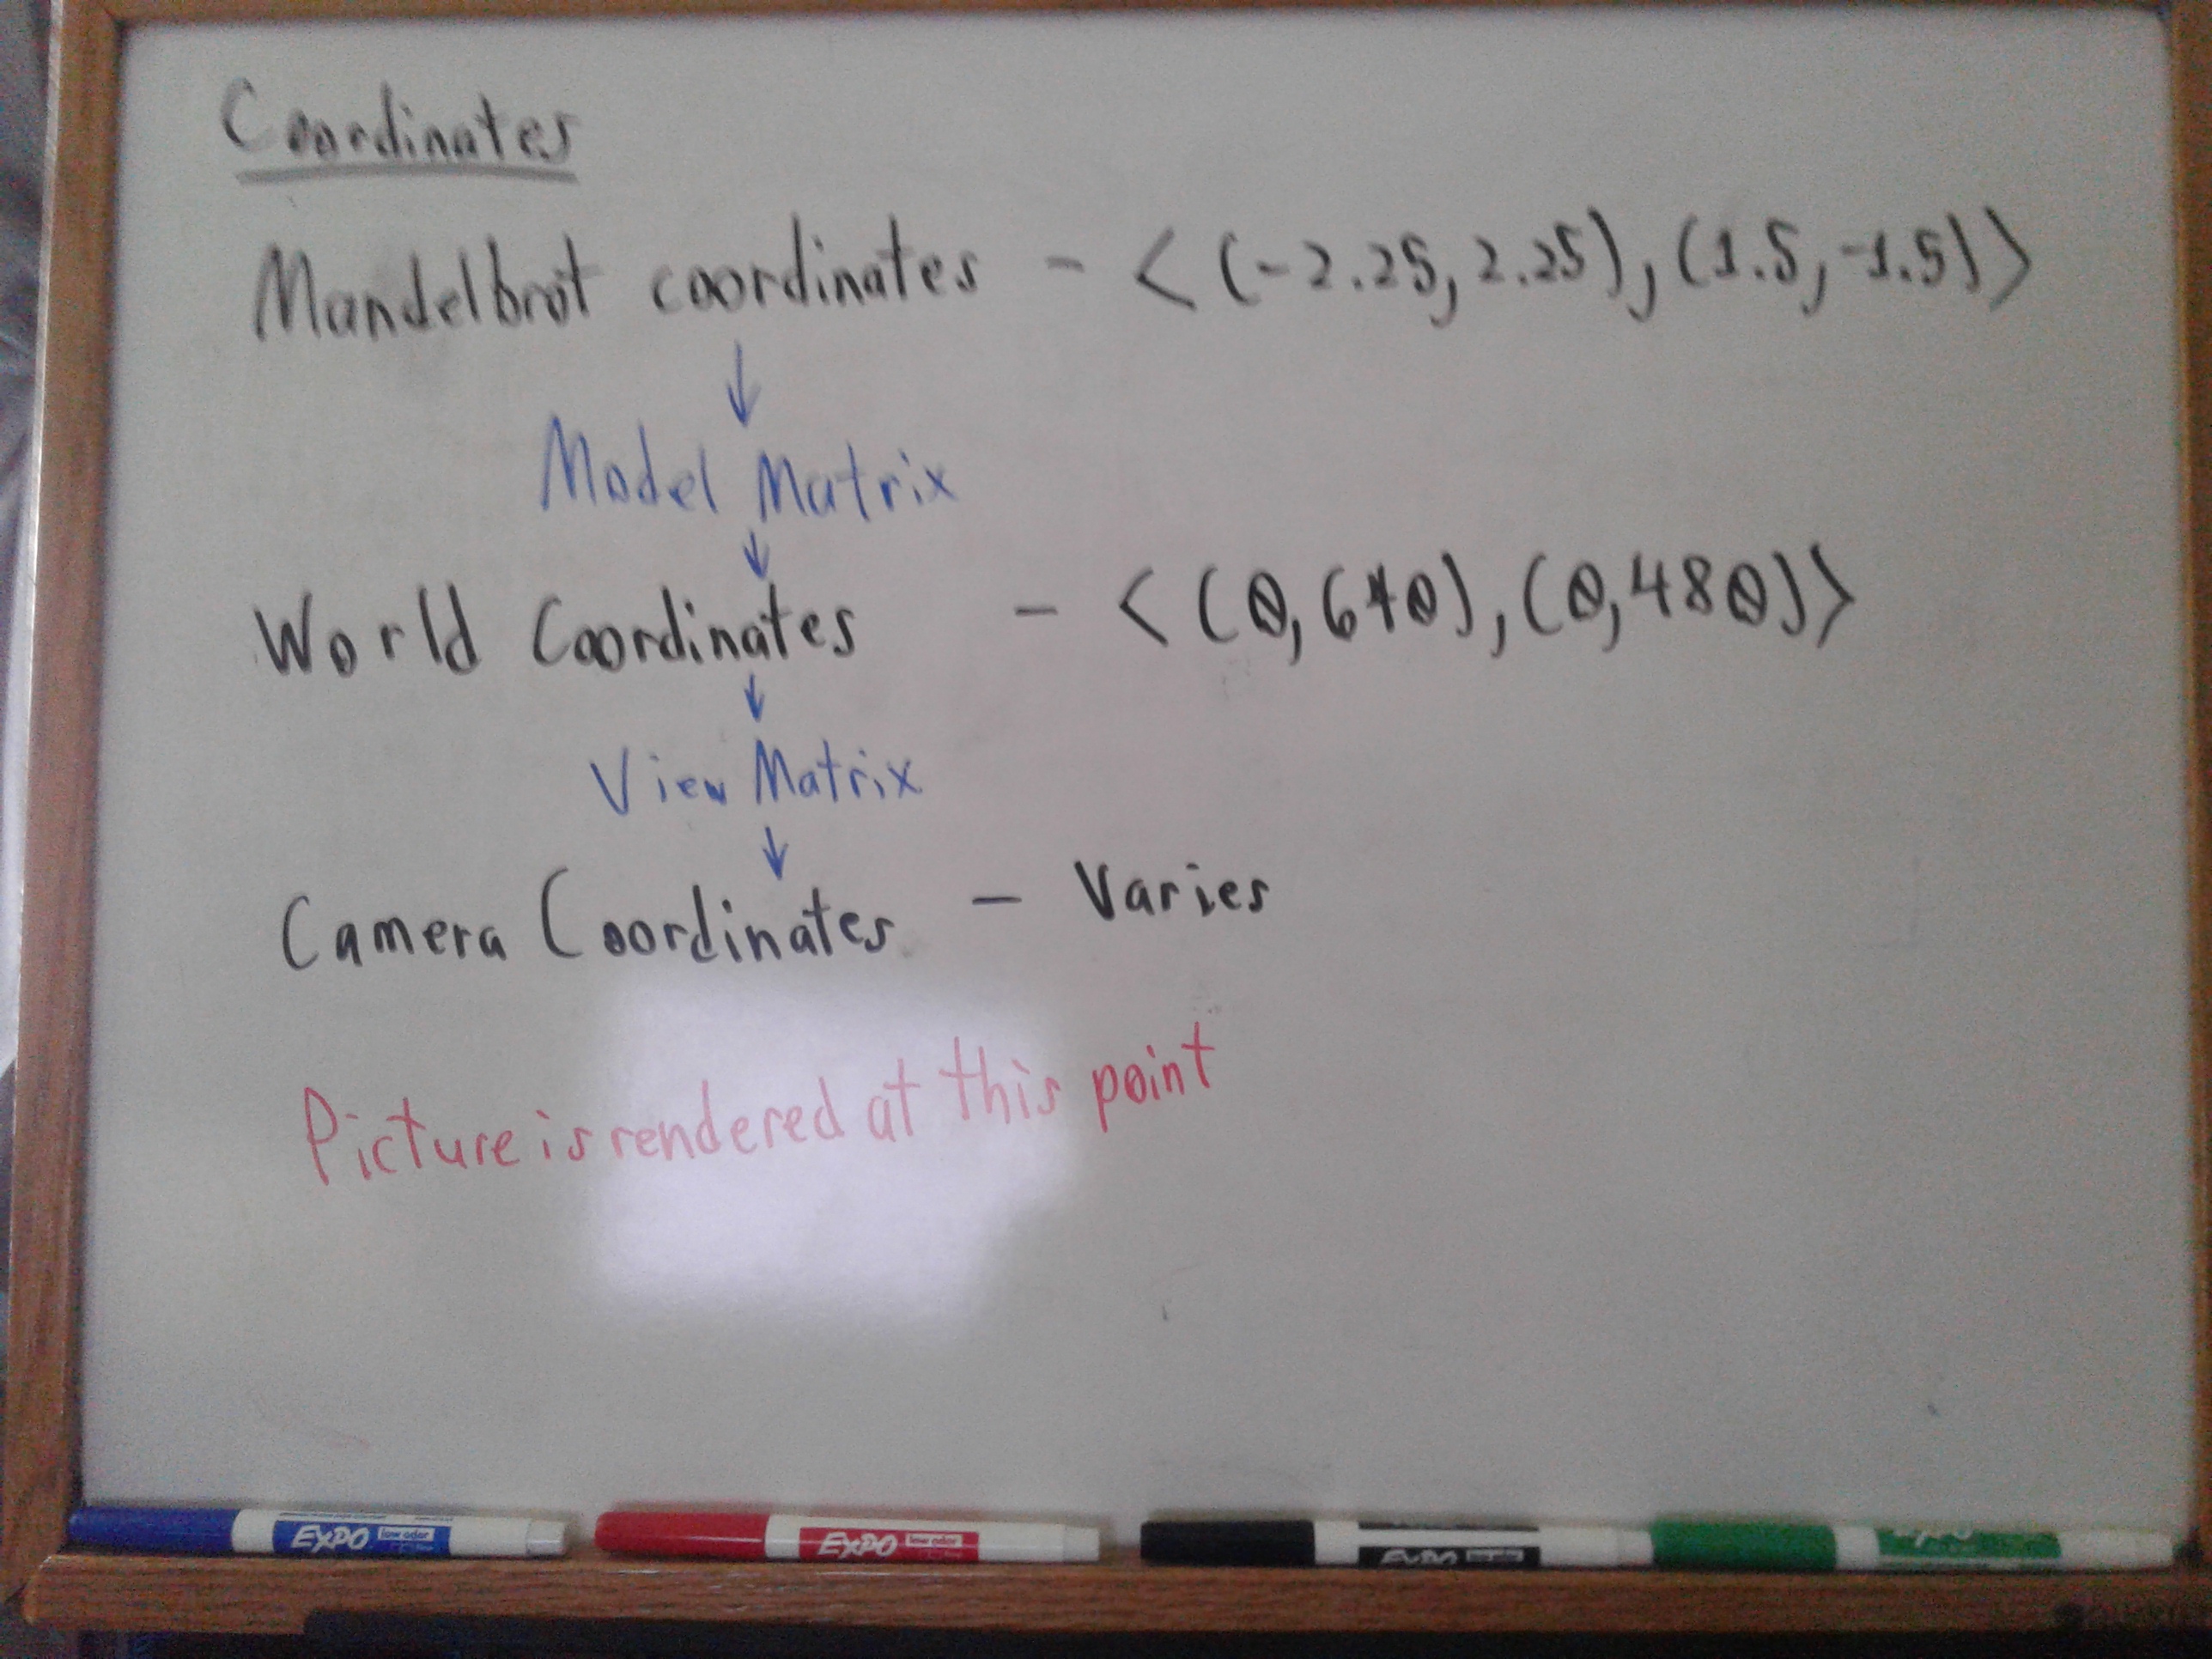 Coordinates
Mandelbrot coordinates - <(-2.25, 2.25), (1.5, -1.5)>
↓
Model Matrix
↓
World Coordinates - <(0, 640), (0, 480)>
↓
View Matrix
↓
Camera Coordinates - Varies
Picture is rendered at this point
EXPO low odor
EXPO low odor
EXPO
EXPO